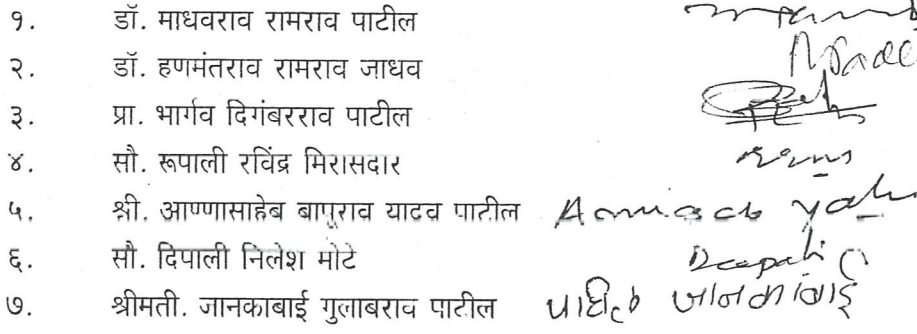 १. डॉ. माधवराव रामराव पाटील
२. डॉ. हणमंतराव रामराव जाधव
३. प्रा. भार्गव दिगंबरराव पाटील
४. सौ. रूपाली रविंद्र मिरासदार
५. श्री. आण्णासाहेब बापुराव यादव पाटील
६. सौ. दिपाली निलेश मोटे Deepali
७. श्रीमती. जानकाबाई गुलाबराव पाटील जानकाबाई